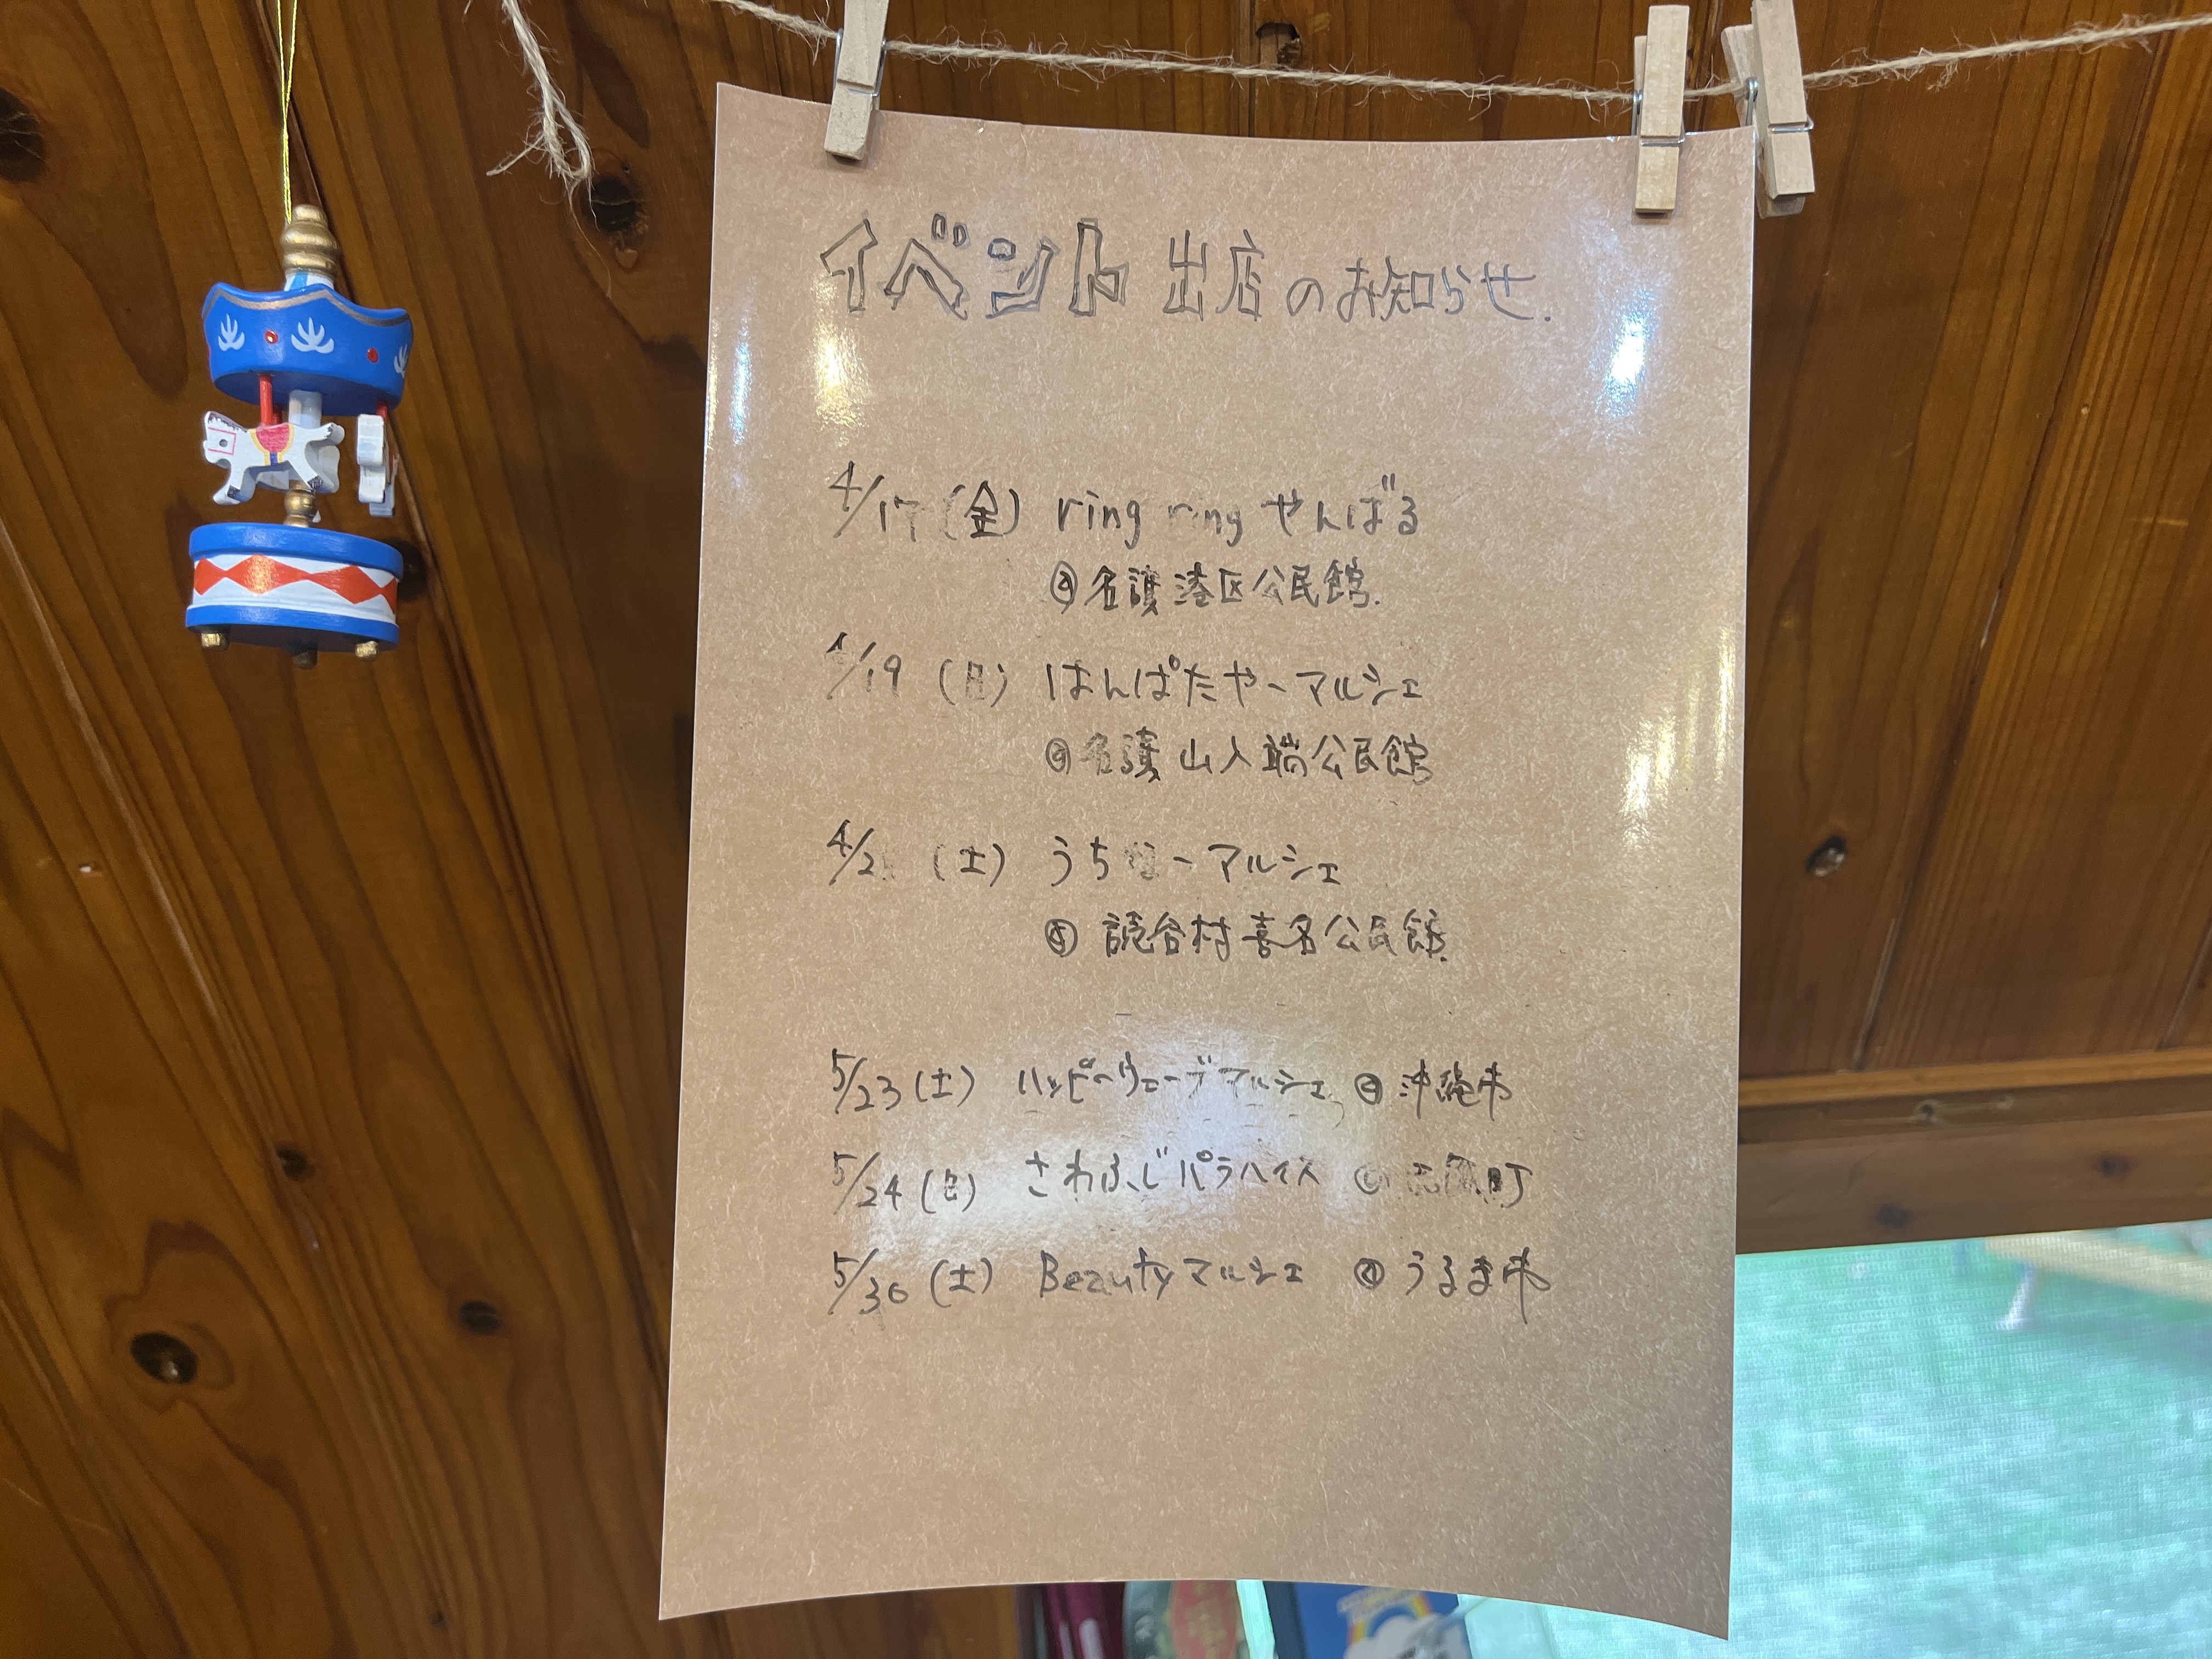 イベント出店のお知らせ.
4/17(金) ring ring やんばる
@名護港区公民館.
4/19 (日) はんぱたやーマルシェ
@名護 山入端公民館
(土) うちなーマルシェ
@ 読谷村喜名公民館.
5/23(土) ハッピーウェーブマルシェ @ 沖縄市
5/24(日) さわふじパラハイス @ 町
5/30(土) Beautyマルシェ @ うるま市